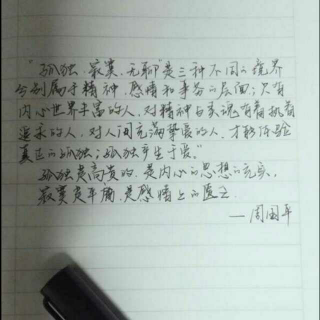 "孤独、寂寞、无聊"是三种不同的境界
分别属于精神、感情和事务的层面;只有
内心世界丰富的人,对精神与灵魂有着执着
追求的人,对人间充满挚爱的人,才能体验
真正的孤独;孤独产生于爱。"
孤独是高贵的,是内心的思想的充实,
寂寞是平庸,是感情上的匮乏
—周国平